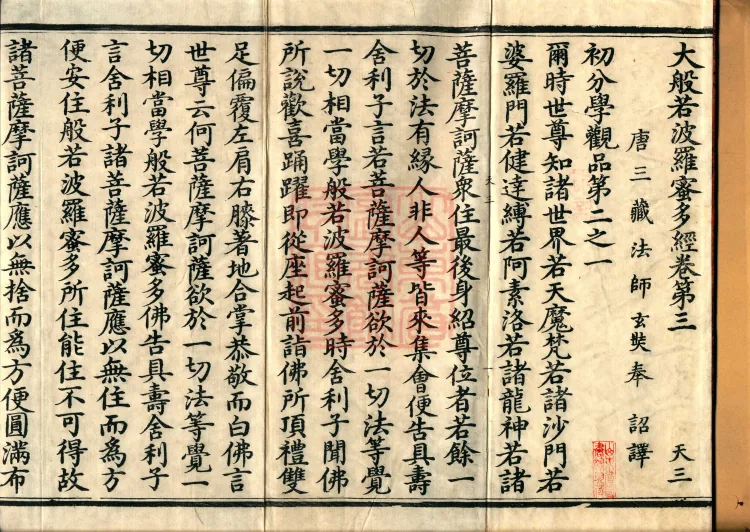 大般若波羅蜜多經卷第三 天三
唐三藏法師玄奘奉 詔譯
初分學觀品第二之一
爾時世尊知諸世界若天魔梵若諸沙門若
婆羅門若健達縛若阿素洛若諸龍神若諸
菩薩摩訶薩眾住最後身紹尊位者若餘一
切於法有緣人非人等皆來集會便告具壽
舍利子言若菩薩摩訶薩欲於一切法等覺
一切相當學般若波羅蜜多時舍利子聞佛
所說歡喜踊躍即從座起前詣佛所頂禮雙
足偏覆左肩右膝著地合掌恭敬而白佛言
世尊云何菩薩摩訶薩欲於一切法等覺一
切相當學般若波羅蜜多佛告具壽舍利子
言舍利子諸菩薩摩訶薩應以無住而為方
便安住般若波羅蜜多所住能住不可得故
諸菩薩摩訶薩應以無捨而為方便圓滿布